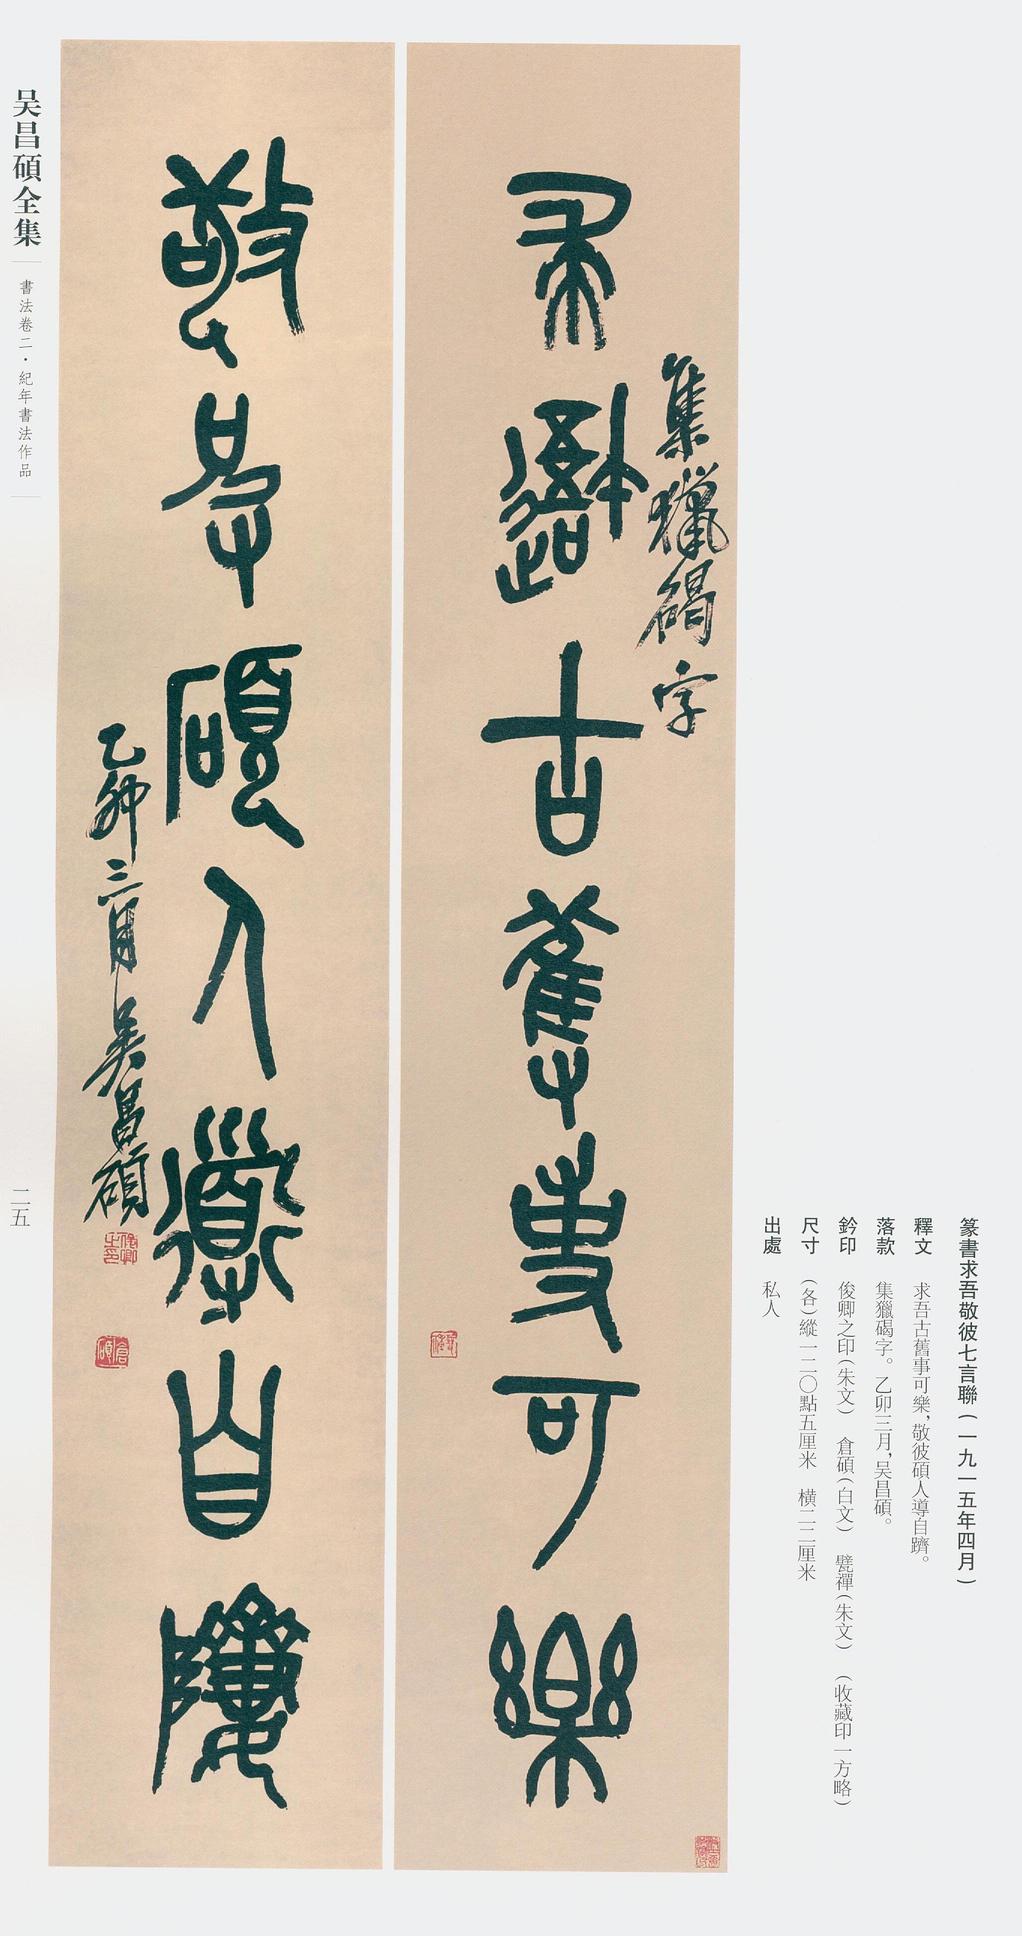 篆書求吾敬彼七言聯(一九一五年四月)
釋文 求吾古舊事可樂,敬彼碩人導自躋。
落款 集獵碣字。乙卯三月,吴昌碩。
鈐印 俊卿之印(朱文) 倉碩(白文) 甓禪(朱文) (收藏印一方略)
尺寸 (各)縱一二〇點五厘米 橫二二厘米
出處 私人
集獵碣字
求吾古舊事可樂
敬彼碩人導自躋
乙卯三月吴昌碩
俊卿之印
倉碩
吴昌碩全集
書法卷二·紀年書法作品
二五